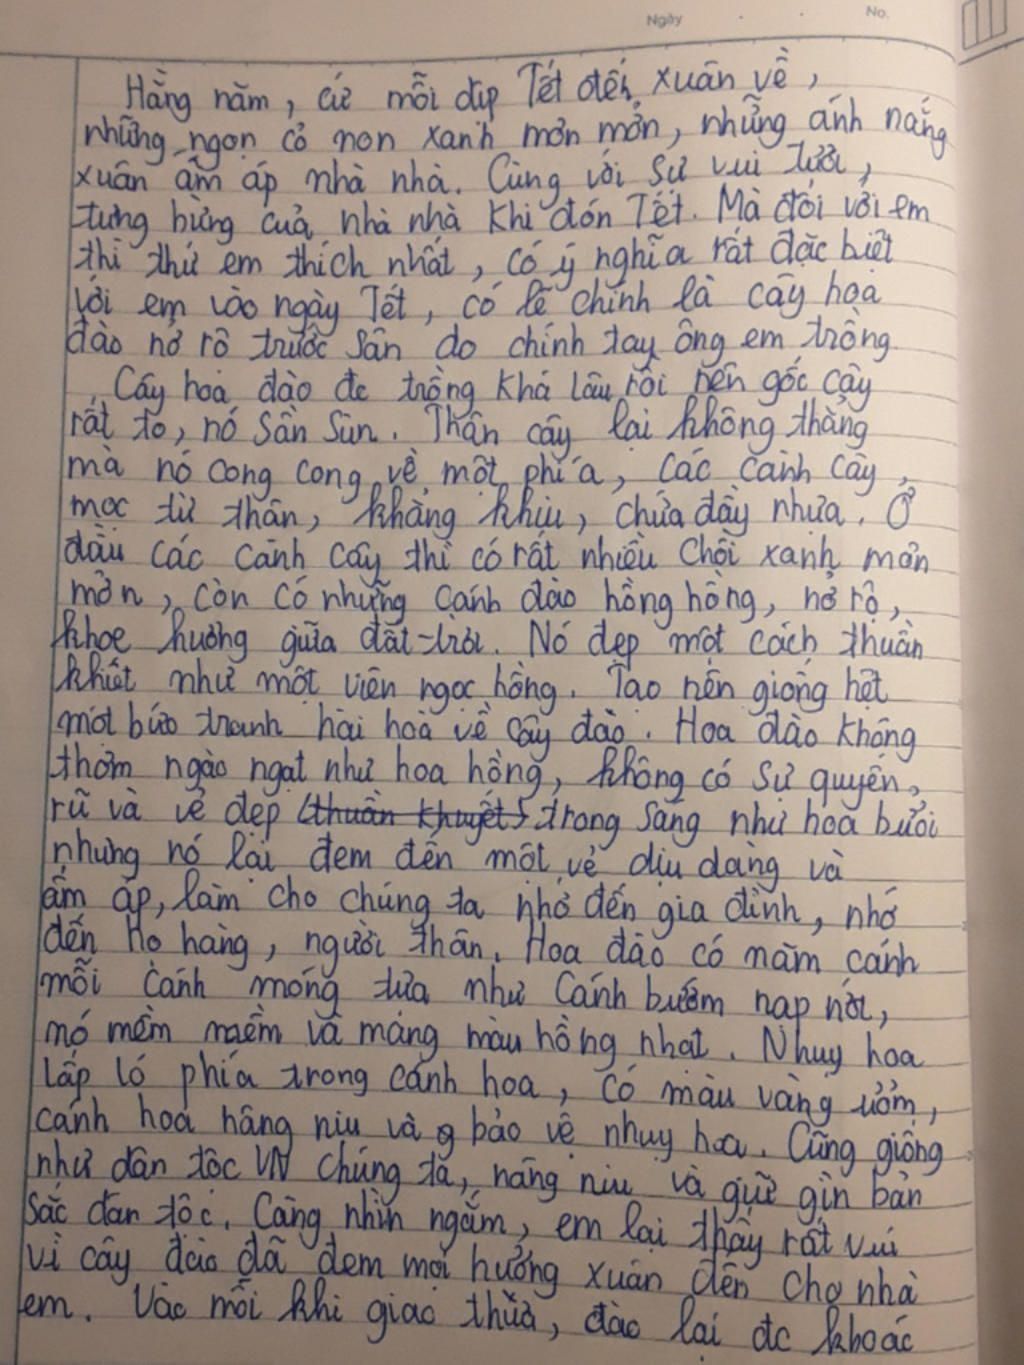 Ngày No.
Hằng năm, cứ mỗi dịp Tết đến, xuân về,
những ngọn cỏ non xanh mơn mởn, những ánh nắng
xuân ấm áp nhà nhà. Cùng với sự vui tươi,
tưng bừng của nhà nhà khi đón Tết. Mà đối với em
thì thứ em thích nhất, có ý nghĩa rất đặc biệt
với em vào ngày Tết, có lẽ chính là cây hoa
đào nở rộ trước sân do chính tay ông em trồng.
Cây hoa đào đc trồng khá lâu rồi nên gốc cây
rất to, nó sần sùn. Thân cây lại không thẳng
mà nó cong cong về một phía, các cành cây
mọc từ thân, khẳng khiu, chứa đầy nhựa. Ở
đầu các cành cây thì có rất nhiều chồi xanh mơn
mởn, còn có những cánh đào hồng hồng, nở rộ,
khoe hương giữa đất trời. Nó đẹp một cách thuần
khiết như một viên ngọc hồng. Tạo nên giống hệt
một bức tranh hài hoà về cây đào. Hoa đào không
thơm ngào ngạt như hoa hồng, không có sự quyến
rũ và vẻ đẹp (thuần khuyết) trong sáng như hoa bưởi
nhưng nó lại đem đến một vẻ dịu dàng và
ấm áp, làm cho chúng ta nhớ đến gia đình, nhớ
đến họ hàng, người thân. Hoa đào có năm cánh
mỗi cánh mỏng tựa như cánh bướm nạp nót,
nó mềm mềm và mang màu hồng nhạt. Nhuỵ hoa
lấp ló phía trong cánh hoa, có màu vàng ươm,
cánh hoa nâng niu và g bảo vệ nhuỵ hoa. Cũng giống
như dân tộc VN chúng ta, nâng niu và giữ gìn bản
sắc dân tộc. Càng nhìn ngắm, em lại thấy rất vui
vì cây đào đã đem mọi hương xuân đến cho nhà
em. Vào mỗi khi giao thừa, đào lại đc khoác